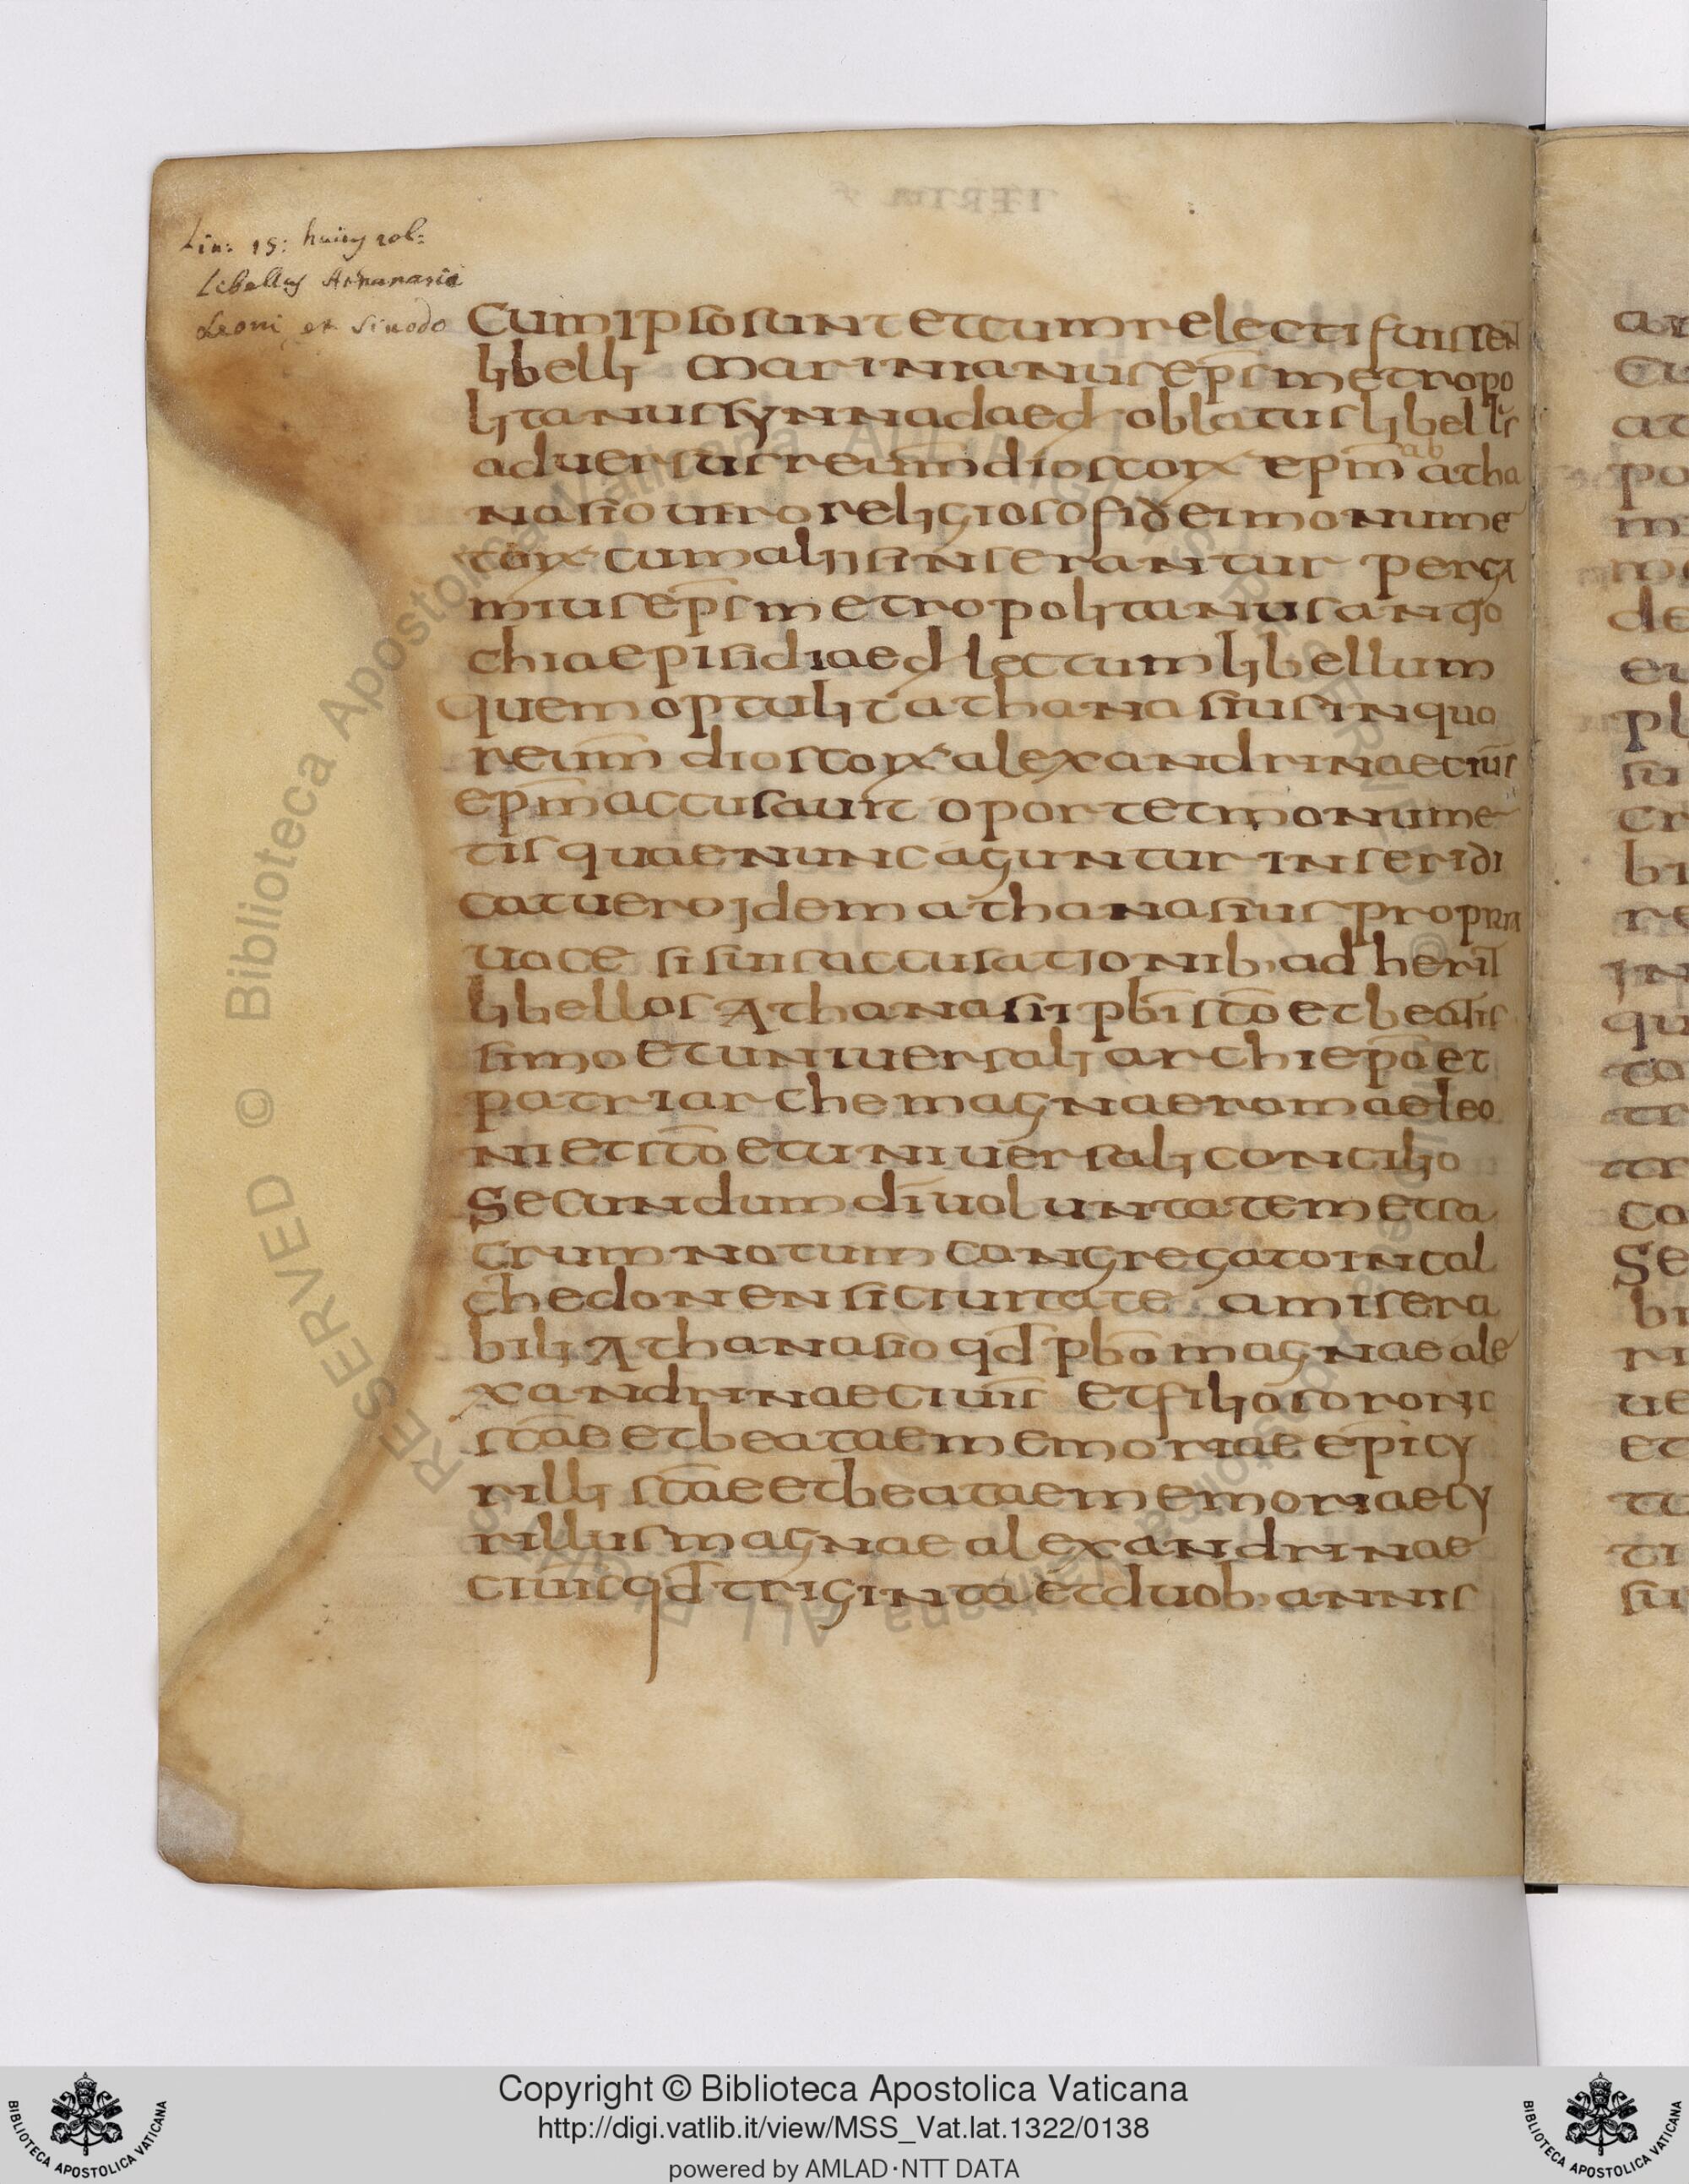 Lin: 15: huius vol:
Libellus Athanasii
Leoni et Sinodo
Cum ipso sunt et cum relecti fuissent
libelli marinianus ep̄s metropo
litanus synnadae dꝗ oblatus libellis
aduersus reuer̄m dioscorꝝ ep̄m ab atha
nasio uiro religioso fidei monume
torꝝ cum aliis inserantur perga
mius ep̄s metropolitanus antio
chiae pisidiae d lectum libellum
quem optulit athanasius in quo
reuer̄m dioscorꝝ alexandrinae ciuis
ep̄m accusauit oportet monume
tis quae nunc aguntur inseri di
cat uero idem athanasius propria
uoce si suis accusationib; adherit
libellos Athanasii pb̄i sc̄o et beatis
simo et uniuersali archiep̄o et
patriarche magnae romae leo
ni et sc̄o et uniuersali concilio
Secundum dī uoluntatem et sa
crum notum congregato in cal
chedonensi ciuitate a misera
bili Athanasio qd̄ pb̄o magnae ale
xandrinae ciuis et filio sororis
sc̄ae et beatae memoriae ep̄i cy
rilli sc̄ae et beatae memoriae cy
rillus magnae alexandrinae
ciuis qd̄ triginta et duob; annis
Copyright © Biblioteca Apostolica Vaticana
http://digi.vatlib.it/view/MSS_Vat.lat.1322/0138
powered by AMLAD·NTT DATA
BIBLIOTECA APOSTOLICA VATICANA
BIBLIOTECA APOSTOLICA VATICANA